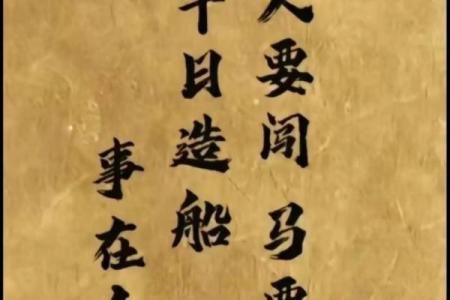 人要闯 马要
目造船
事在